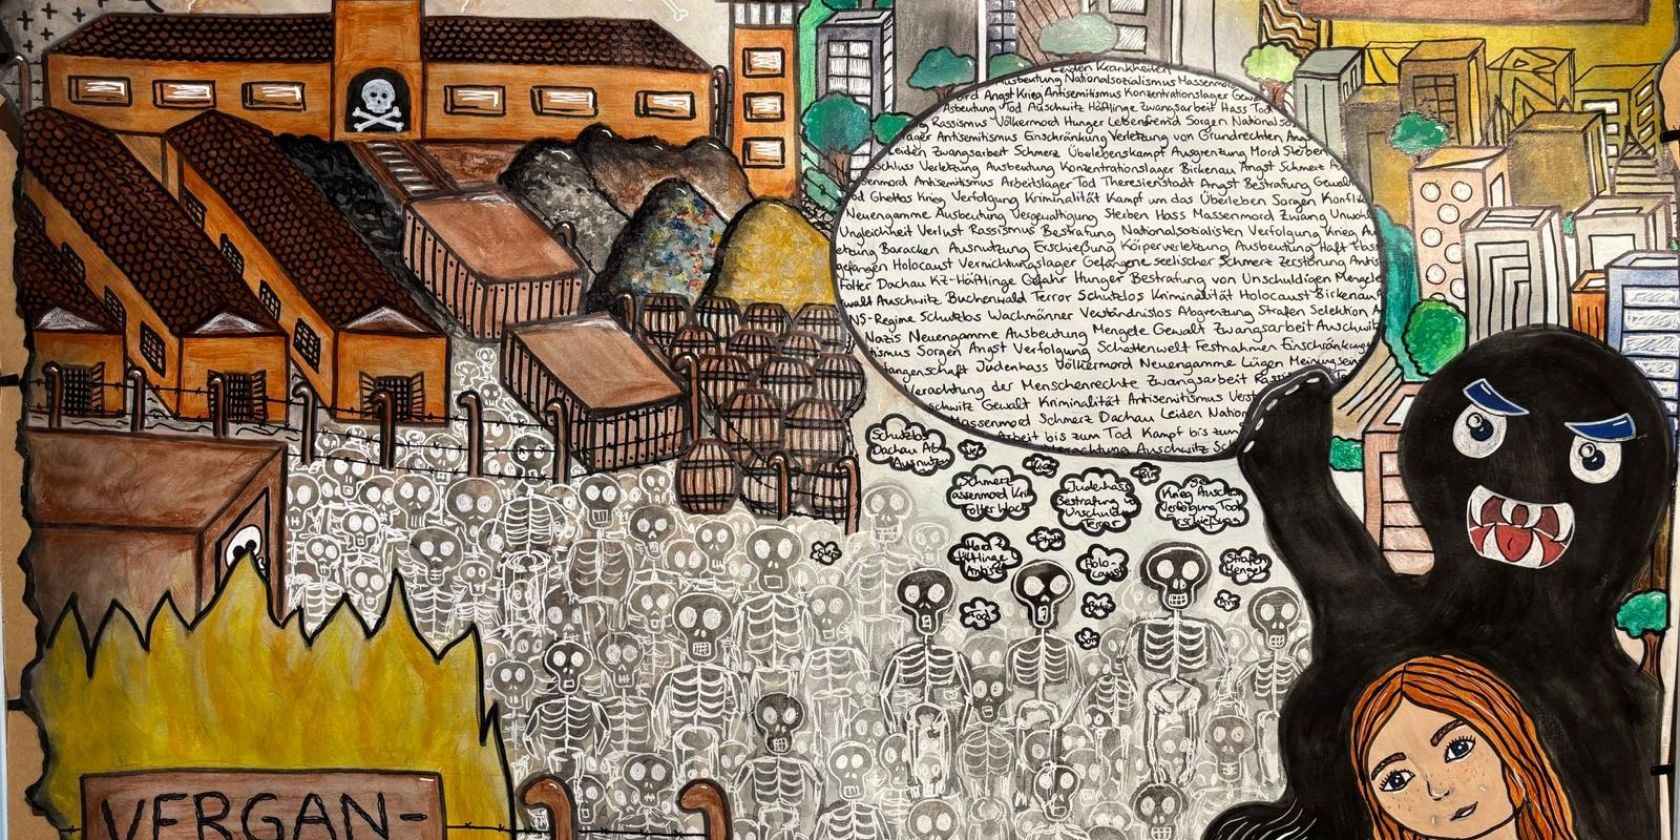 Leiden Krankheiten
Ausbeutung Nationalsozialismus Massenmord
Angst Krieg Antisemitismus Konzentrationslager
Asbeutung Tod Auschwitz Häftlinge Zwangsarbeit Hass Tod
Rassismus Völkermord Hunger Lebensfremd Sorgen
Antisemitismus Einschränkung Verletzung von Grundrechten Angst
Leiden Zwangsarbeit Schmerz Überlebenskampf Ausgrenzung Mord Sterben
Verletzung Ausbeutung Konzentrationslager Birkenau Angst Schmerz
Antisemitismus Arbeitslager Tod Theresienstadt Angst Bestrafung
Ghettos Krieg Verfolgung Kriminalität Kampf um das Überleben Sorgen
Neuengamme Ausbeutung Vergewaltigung Sterben Hass Massenmord Zwang
Ungleichheit Verlust Rassismus Bestrafung Nationalsozialisten Verfolgung Krieg
Baracken Ausnutzung Erschießung Körperverletzung Ausbeutung Haft Hass
gefangen Holocaust Vernichtungslager Gefangene seelischer Schmerz Zerstörung
Folter Dachau KZ-Häftlinge Gefahr Hunger Bestrafung von Unschuldigen Mengele
Auschwitz Buchenwald Terror Schutzlos Kriminalität Holocaust Birkenau
NS-Regime Schutzlos Wachmänner Verständnislos Abgrenzung Strafen Selektion
Nazis Neuengamme Ausbeutung Mengele Gewalt Zwangsarbeit Auschwitz
Sorgen Angst Verfolgung Schattenwelt Festnahmen Einschränkung
Judenhass Völkermord Neuengamme Lügen
Verachtung der Menschenrechte Zwangsarbeit
Gewalt Kriminalität Antisemitismus
Massenmord Schmerz Dachau Leiden
Arbeit bis zum Tod Kampf bis zum
Auschwitz
Schutzlos
Dachau
Schmerz
Folter
Judenhass
Bestrafung
Unschuld
Terror
Krieg
Verfolgung Tod
Erschießung
Holo-
caust
Strafen
Mengele
Tod
VERGAN-